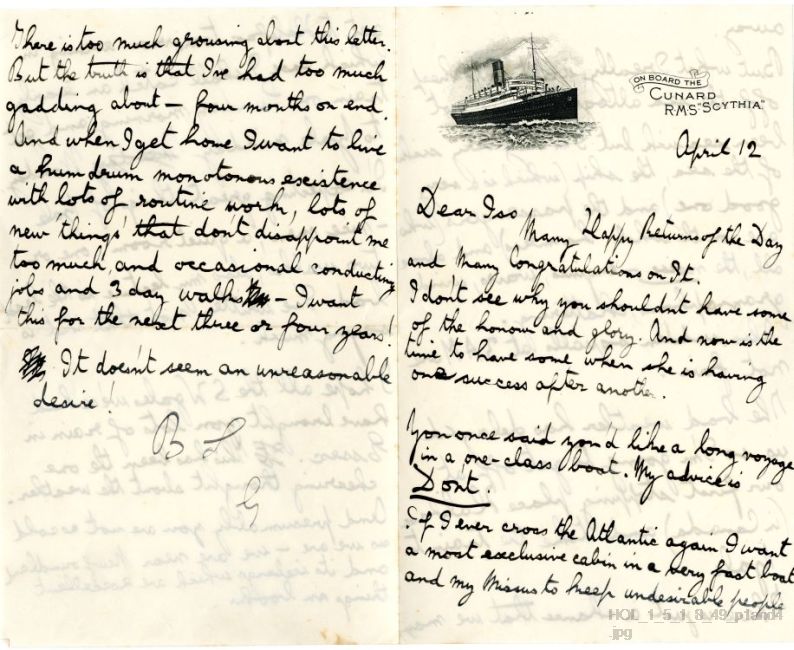 There is too much grousing about this letter.
But the truth is that I've had too much
gadding about - four months on end.
And when I get home I want to live
a humdrum monotonous existence
with lots of routine work, lots of
new 'things' that don't disappoint me
too much, and occasional conducting
jobs and 3 day walks - I want
this for the next three or four years!
It doesn't seem an unreasonable
desire!
G
ON BOARD THE
CUNARD
R.M.S. "SCYTHIA"
April 12
Dear Iso
Many Happy Returns of the Day
and Many Congratulations on It.
I don't see why you shouldn't have some
of the honour and glory. And now is the
time to have some when she is having
one success after another.
You once said you'd like a long voyage
in a one-class boat. My advice is
Don't.
If I ever cross the Atlantic again I want
a most exclusive cabin in a very fast boat
and my Missus to keep undesirable people
HOL_1_5_1_8_49_p1and4
.jpg